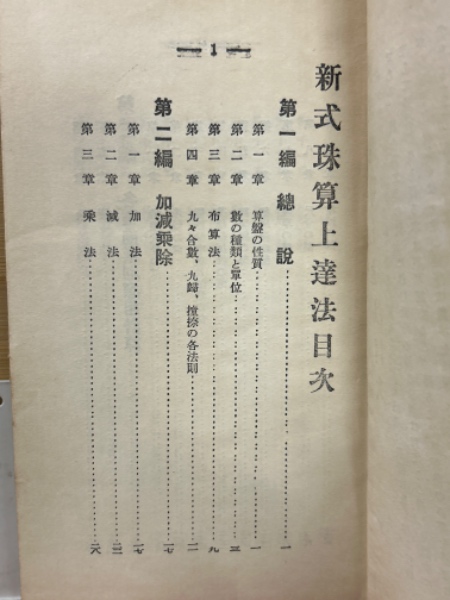 新式珠算上達法目次
第一編 總說……一
第一章 算盤の性質……一
第二章 數の種類と單位……三
第三章 布算法……九
第四章 九々合數、九歸、撞除の各法則……一二
第二編 加減乘除……一七
第一章 加法……一七
第二章 減法……二二
第三章 乘法……二八
— 1 —